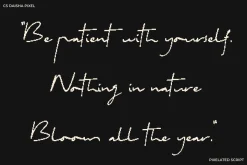 CS DAISHA PIXEL
"Be patient with yourself.
Nothing in nature
Bloom all the year."
PIXELATED SCRIPT